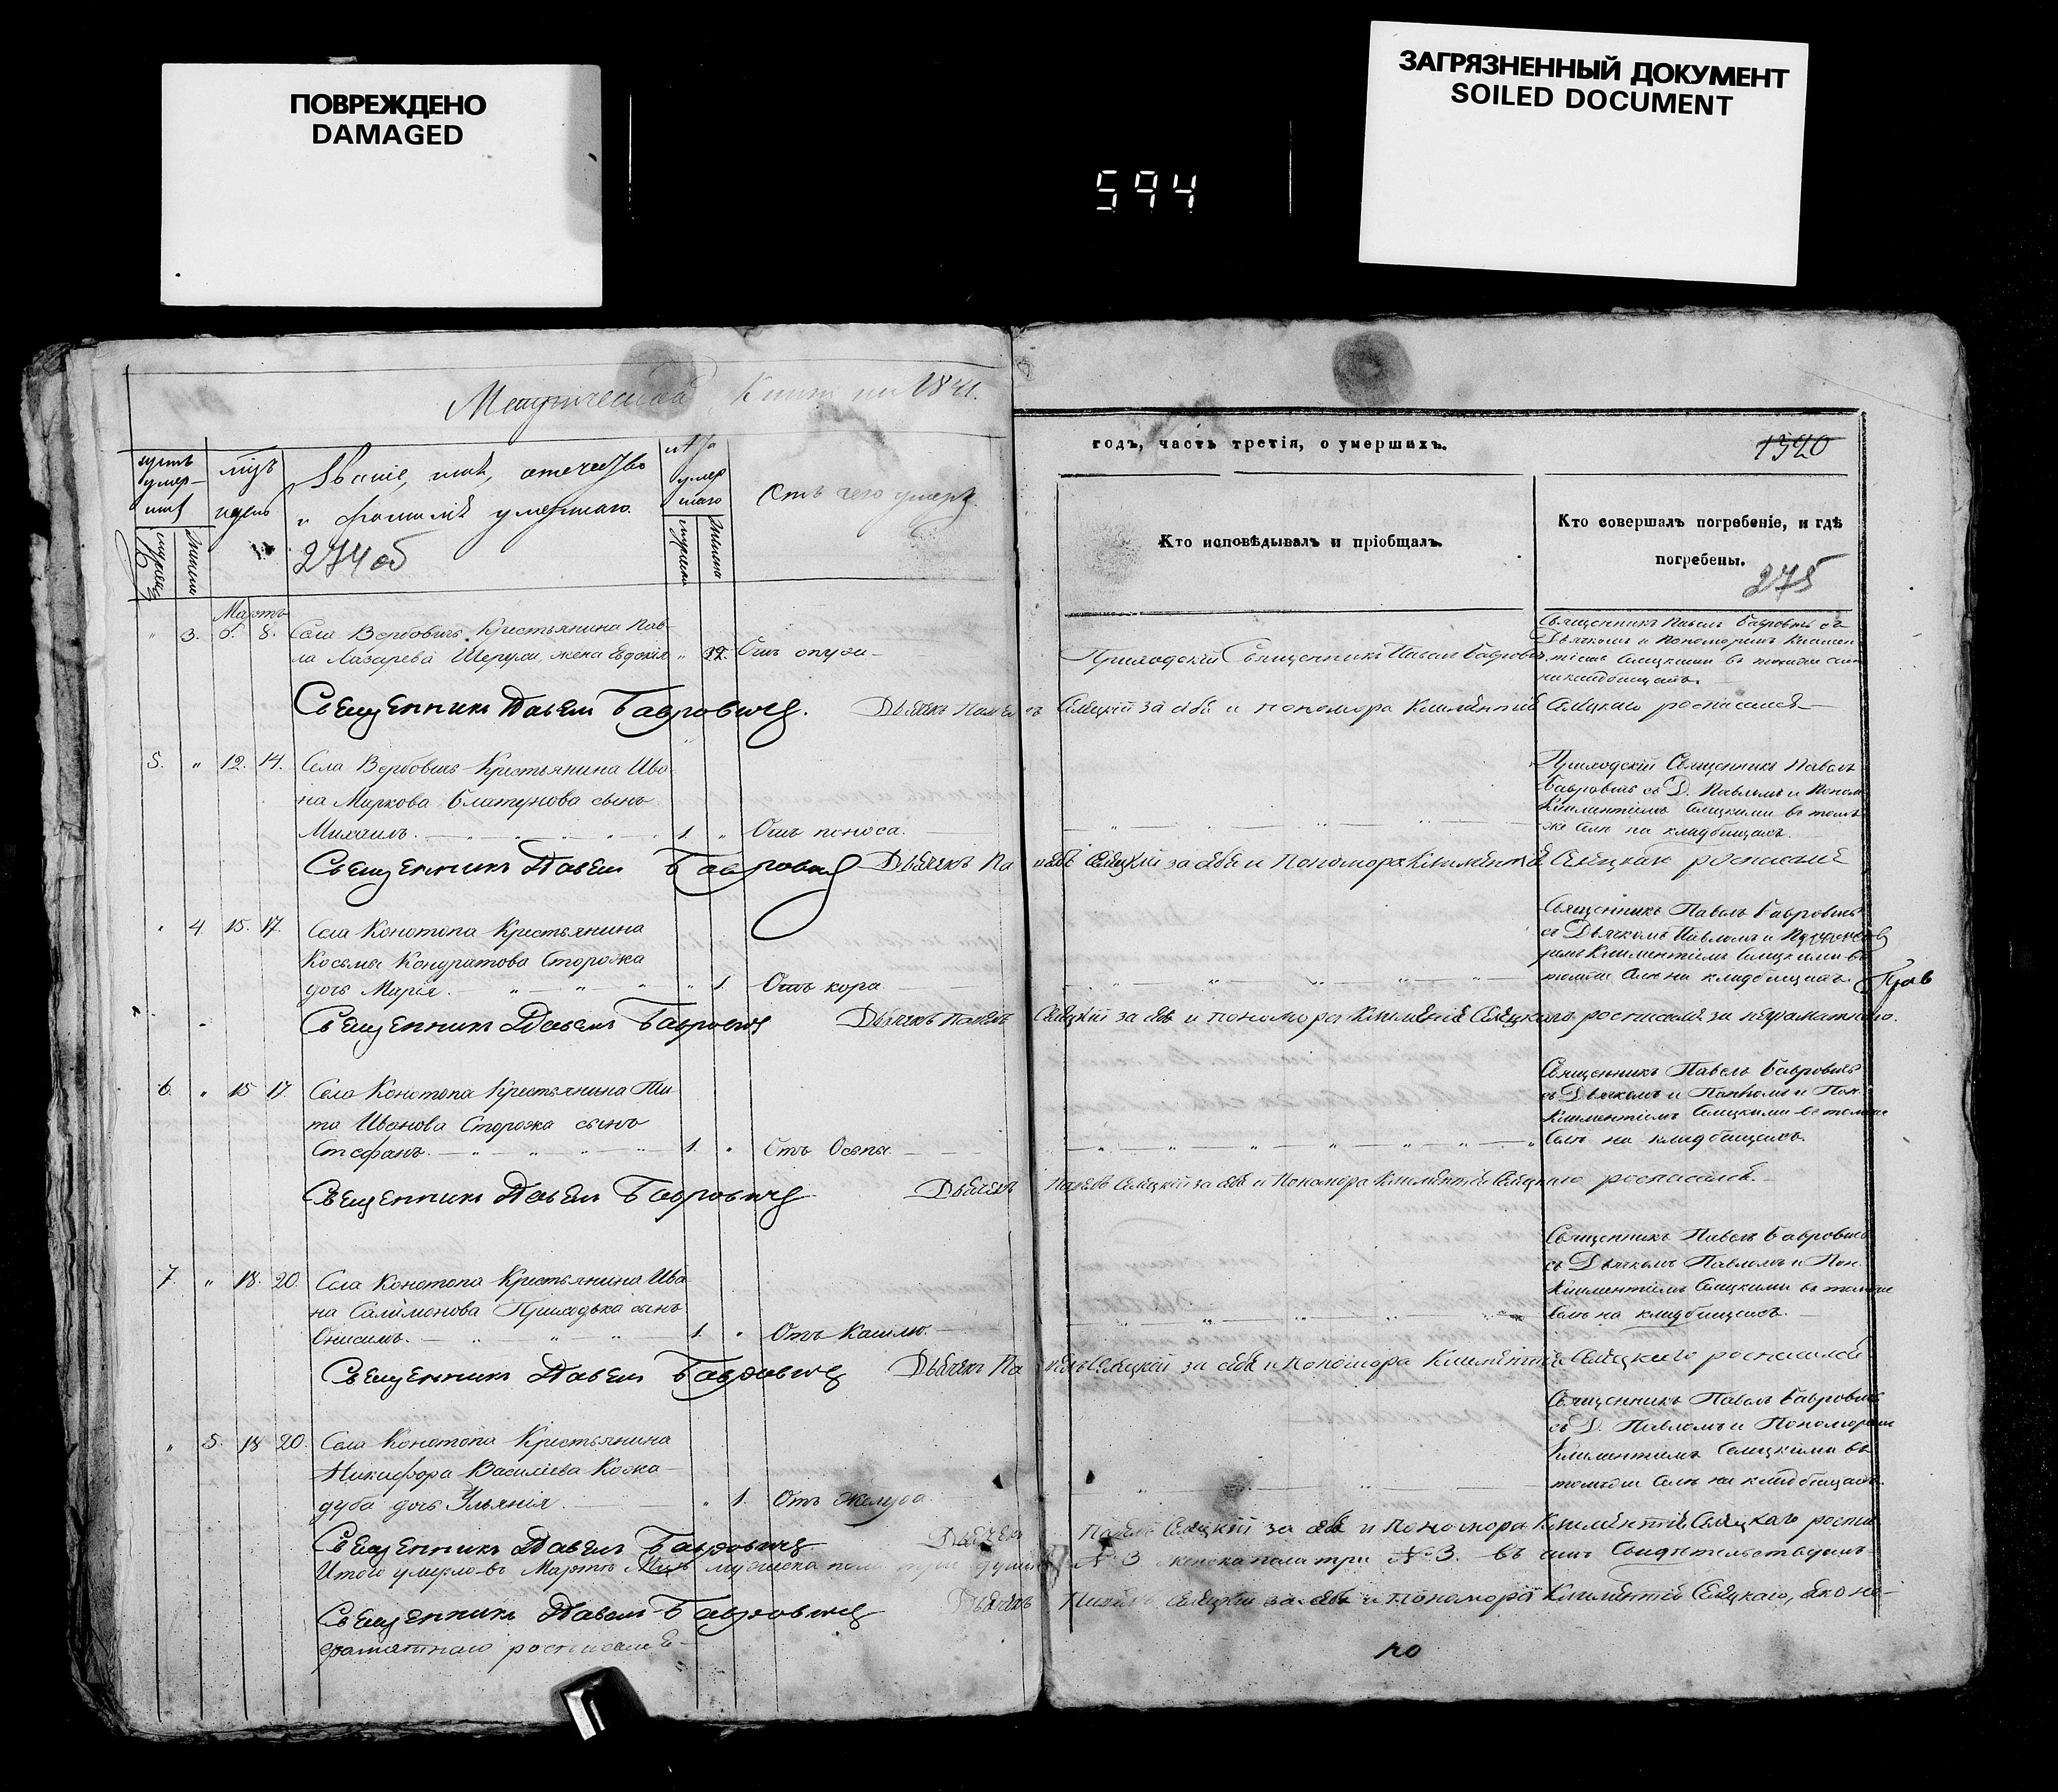 ПОВРЕЖДЕНО
DAMAGED
ЗАГРЯЗНЕННЫЙ ДОКУМЕНТ
SOILED DOCUMENT
594
Метрическая Книга на 1841.
годъ, часть третія, о умершихъ.
1320
Званіе, имя, отечество
и фамилія умершаго.
274 об
Отъ чего умеръ
Кто исповѣдывалъ и пріобщалъ.
Кто совершалъ погребеніе, и гдѣ
погребены.
275
Мартъ
" 3. 6. 8. Села Вербовичъ Крестьянина Пав-
ла Лазарева жена Евдокія "
Приходскій Священникъ Павелъ Бавровичъ
Священникъ Павелъ Бавровичъ съ
Дьячкомъ и Пономаремъ
на кладбищахъ.
Священникъ Павелъ Бавровичъ. Дьячекъ Павелъ Сѣлицкій за себя и пономора Климентія Селицкаго росписался
5. " 12. 14. Села Вербовичъ Крестьянина Ива-
на Маркова сынъ
Михаилъ. 1. " Отъ поноса.
Приходскій Священникъ Павелъ
Бавровичъ съ Д. Павломъ и Поном.
Климентіемъ Селицкими въ томъ
же селѣ на кладбищахъ.
Священникъ Павелъ Бавровичъ Дьячекъ Павелъ Селицкій за себя и пономора Климентія Селицкаго росписался
" 4 15. 17. Села Конотопа Крестьянина
Косьмы Кондратова Сторожка
дочь Марія. " 1. Отъ кора
Священникъ Павелъ Бавровичъ
съ Дьячкомъ Павломъ и Пономо-
ремъ Климентіемъ Селицкими въ
томже селѣ на кладбищахъ.
Священникъ Павелъ Бавровичъ Дьячекъ Павелъ Селицкій за себя и пономора Климентія Селицкаго росписался за неграматнаго.
6. " 15 17. Села Конотопа Крестьянина Ти-
та Иванова Сторожка сынъ
Стефанъ. 1. " Отъ Оспы
Священникъ Павелъ Бавровичъ
съ Дьячкомъ и Пон.
Климентіемъ Селицкими въ томже
селѣ на кладбищахъ.
Священникъ Павелъ Бавровичъ Дьячекъ Павелъ Селицкій за себя и Пономора Климентія Селицкаго росписался.
7. " 18. 20. Села Конотопа Крестьянина Ива-
на Салимонова Приходька сынъ
Онисимъ. 1. " Отъ Кашлю.
Священникъ Павелъ Бавровичъ
съ Дьячкомъ Павломъ и Пон.
Климентіемъ Селицкими въ томже
селѣ на кладбищахъ.
Священникъ Павелъ Бавровичъ Дьячекъ Павелъ Селицкій за себя и пономора Климентія Селицкаго росписался
" 5. 18 20. Села Конотопа Крестьянина
Никифора Василіева Кожа-
дуба дочь Ульянія. " 1. Отъ
Священникъ Павелъ Бавровичъ
съ Д. Павломъ и Пономоремъ
Климентіемъ Селицкими въ
томже селѣ на кладбищахъ.
Священникъ Павелъ Бавровичъ Дьячекъ Павелъ Селицкій за себя и пономора Климентія Селицкаго роспи
Итого умерло въ Мартѣ мужеска пола три души № 3 женска пола три № 3. въ чемъ Свидетельствуемъ
Священникъ Павелъ Бавровичъ Дьячекъ Павелъ Селицкій за себя и пономора Климентія Селицкаго, яко не-
граматнаго росписался